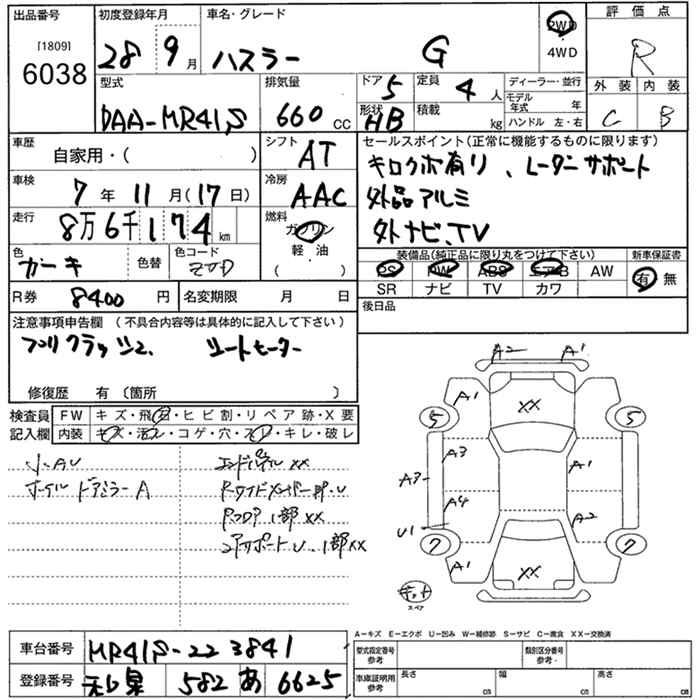 出品番号
[1809]
6038
初度登録年月
28 9月
車名・グレード
ハスラー G
2WD
4WD
評価点
R
外装 内装
C B
型式
DAA-MR41S
排気量
660 CC
ドア 5
形状 HB
定員 4 人
積載 kg
ディーラー・並行
モデル年式 年
ハンドル 左・右
車歴
自家用・( )
シフト AT
車検
7年11月(17日)
冷房 AAC
走行
8万6千174km
燃料 ガソリン
軽・油
( )
色 カーキ
色替
色コード
セールスポイント(正常に機能するものに限ります)
キロクボ有り、レーダーサポート
外品アルミ
外ナビ、TV
装備品(純正品に限り丸をつけて下さい)
PS PW ABS エアB AW
SR ナビ TV カワ
新車保証書
有 無
R券 8400円
名変期限 月 日
後日品
注意事項申告欄 (不具合内容等は具体的に記入して下さい)
シートヒーター
修復歴 有 〔箇所 〕
検査員記入欄
FW キズ・飛石・ヒビ割・リペア跡・X要
内装 キズ・活スレ・コゲ・穴・スレ・キレ・破レ
小AU
ホイル ドアミラーA
エンドパネルXX
Rフロア1部XX
A2 A1
A1 XX
5 5
A3 A1
A3
A4 A2
U1
7 7
A1 XX
スペア
A-キズ E-エクボ U-凹み W-補修跡 S-サビ C-腐食 XX-交換済
車台番号 MR41S-223841
登録番号 和泉 582 あ 6625
型式指定番号 参考
類別区分番号 参考
車庫証明用 参考
長さ cm 幅 cm 高さ cm